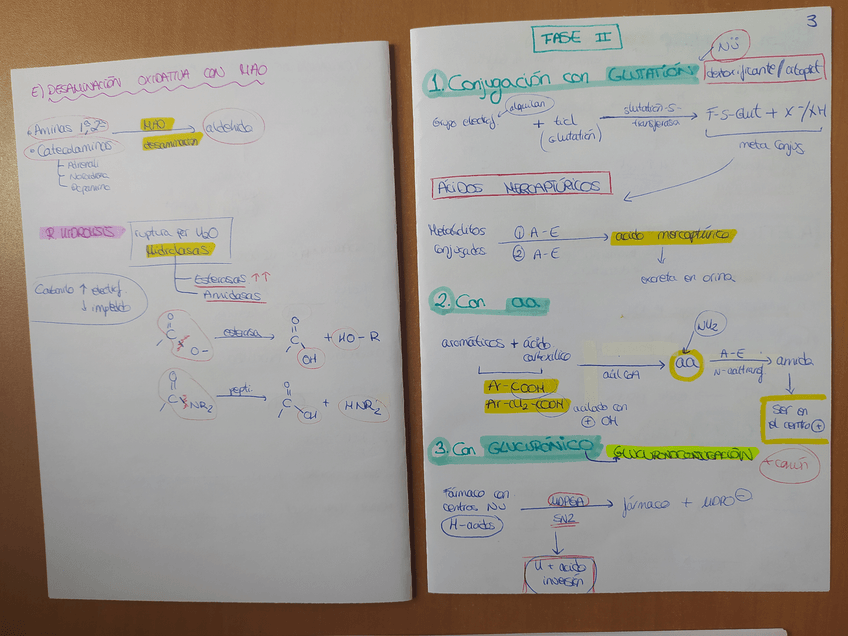 E) DESAMINACIÓN OXIDATIVA CON MAO
• Aminas 1º, 2º
MAO
desaminación
aldehído
• Catecolaminas
Adrenali
Noradrena
Dopamina
R HIDRÓLISIS
ruptura por H2O
Hidrolasas
Esterasas ↑↑
Amidasas
Carbonilo ↑ electróf.
↓ impedido
O
C
O-
esterasa
O
C
OH
+ HO-R
O
C
NR2
pepti.
O
C
OH
+ HNR2
3
FASE II
Nü
1. Conjugación con GLUTATIÓN
detoxificante/citoprot
alquilan
Grupo electróf.
+ tiol
(glutatión)
glutatión-S-
transferasa
F-S-Glut + X⁻/XH
metab Conjug
ÁCIDOS MERCAPTÚRICOS
Metabolitos
Conjugados
① A-E
② A-E
ácido mercaptúrico
excreta en orina
2. Con aa
NH2
aromáticos + ácido
carboxílico
acil CoA
aa
A-E
N-aciltransf
amida
Ar-COOH
Ar-CH2-COOH
acilado con
⊕ OH
Ser en
el centro ⊕
3. Con GLUCURÓNICO
GLUCURONOCONJUGACIÓN
+ común
Fármaco con
centros Nü
H-acids
UDPGA
SN2
fármaco + UDPO⊖
U + ácido
inversión